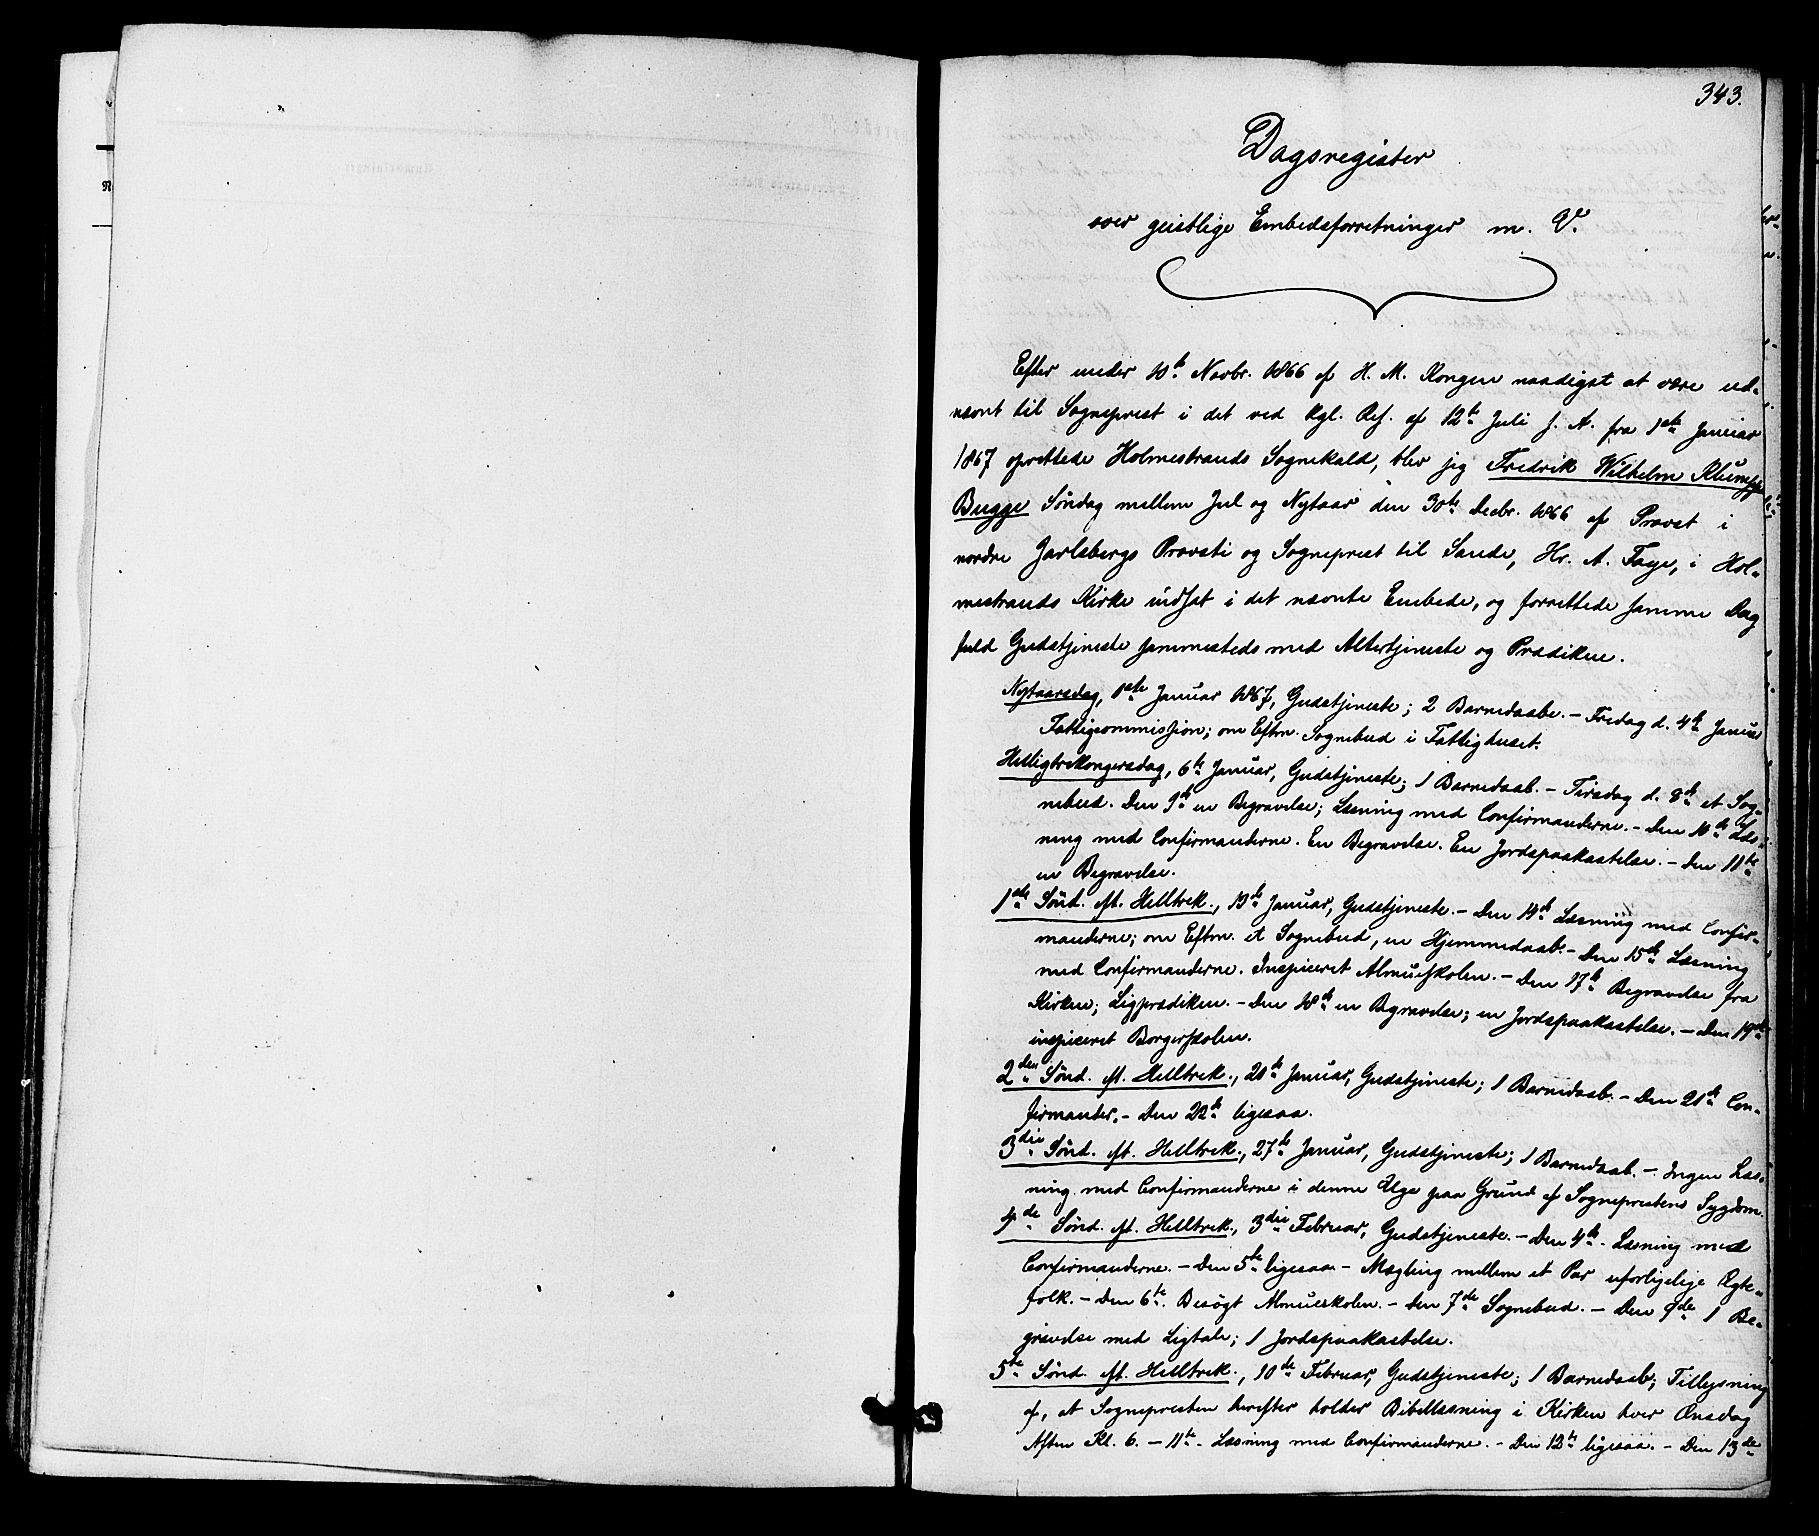 343.
Dagsregister
over geistlige Embedsforretninger m. V.
Efter under 10de Novbr. 1866 af H. M. Kongen naadigst at være ud-
nævnt til Sogneprest i det ved kgl. Res. af 12te Juli s. A. fra 1ste Januar
1867 oprettede Holmestrands Sognekald, blev jeg Fredrik Wilhelm Klumpp
Bugge Søndag mellem Jul og Nytaar den 30te Decbr. 1866 af Provst i
nordre Jarlsbergs Provsti og Sogneprest til Sande, Hr. A. Faye, i Hol-
mestrands Kirke indsat i det nævnte Embede, og forrettede samme Dag
fuld Gudstjeneste sammesteds med Altertjeneste og Prædiken.
Nytaarsdag, 1ste Januar 1867, Gudstjeneste; 2 Barnedaabe. – Fredag d. 4de Januar
Fattigcommission; om Eftm. Sognebud i Fattighuset.
Helligtrekongersdag, 6te Januar, Gudstjeneste; 1 Barnedaab. – Tirsdag d. 8de et Sog-
nebud. Den 9de en Begravelse; Læsning med Confirmanderne. – Den 10de Læs-
ning med Confirmanderne. En Begravelse. En Jordspaakastelse. – Den 11te
en Begravelse.
1ste Sønd. eft. Helltrek., 13de Januar, Gudstjeneste. – Den 14de Læsning med Confir-
manderne; om Eftm. et Sognebud, en Hjemmedaab. – Den 15de Læsning
med Confirmanderne. Inspiceret Almueskolen. – Den 17de Begravelse fra
Kirken; Ligprædiken. – Den 18de en Begravelse; en Jordspaakastelse. – Den 19de
inspiceret Borgerskolen.
2den Sønd. eft. Helltrek., 20de Januar, Gudstjeneste; 1 Barnedaab. – Den 21de Con-
firmander. – Den 22de ligesaa.
3die Sønd. eft. Helltrek., 27de Januar, Gudstjeneste; 1 Barnedaab. – Ingen Læs-
ning med Confirmanderne i denne Uge paa Grund af Sogneprestens Sygdom.
4de Sønd. eft. Helltrek., 3die Februar, Gudstjeneste. – Den 4de. Læsning med
Confirmanderne. – Den 5te ligesaa – Mægling mellem et Par uforligelige Ægte-
folk. – Den 6te. Besøgt Almueskolen. – Den 7de Sognebud. – Den 9de 1 Be-
gravelse med Ligtale; 1 Jordspaakastelse.
5te Sønd. eft. Helltrek., 10de Februar, Gudstjeneste; 1 Barnedaab; Tillysning
af, at Sognepresten herefter holder Bibellæsning i Kirken hver Onsdag
Aften Kl. 6. – 11te. Læsning med Confirmanderne. – Den 12te ligesaa. – Den 13de